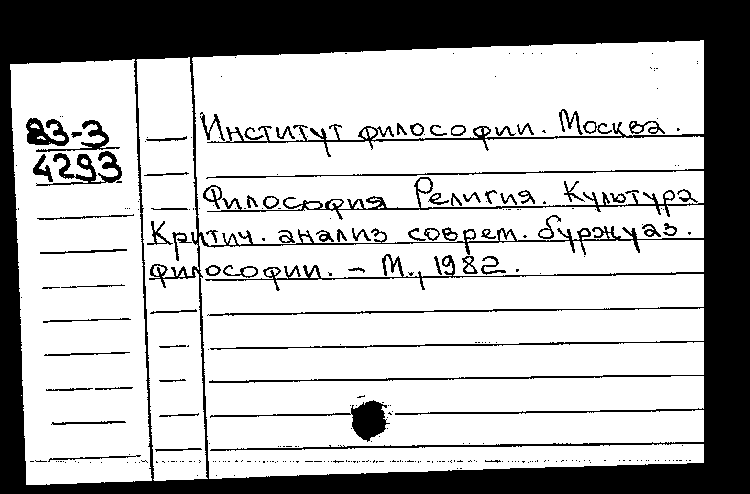 83-3
4293
Институт философии. Москва.
Философия. Религия. Культура
Критич. анализ соврем. буржуаз.
философии. - М., 1982.